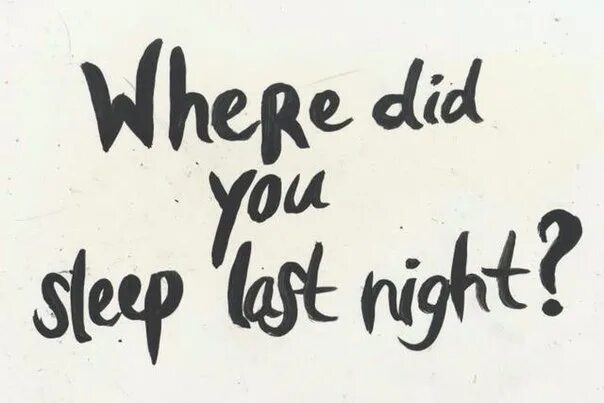 Where did
you
sleep last night?